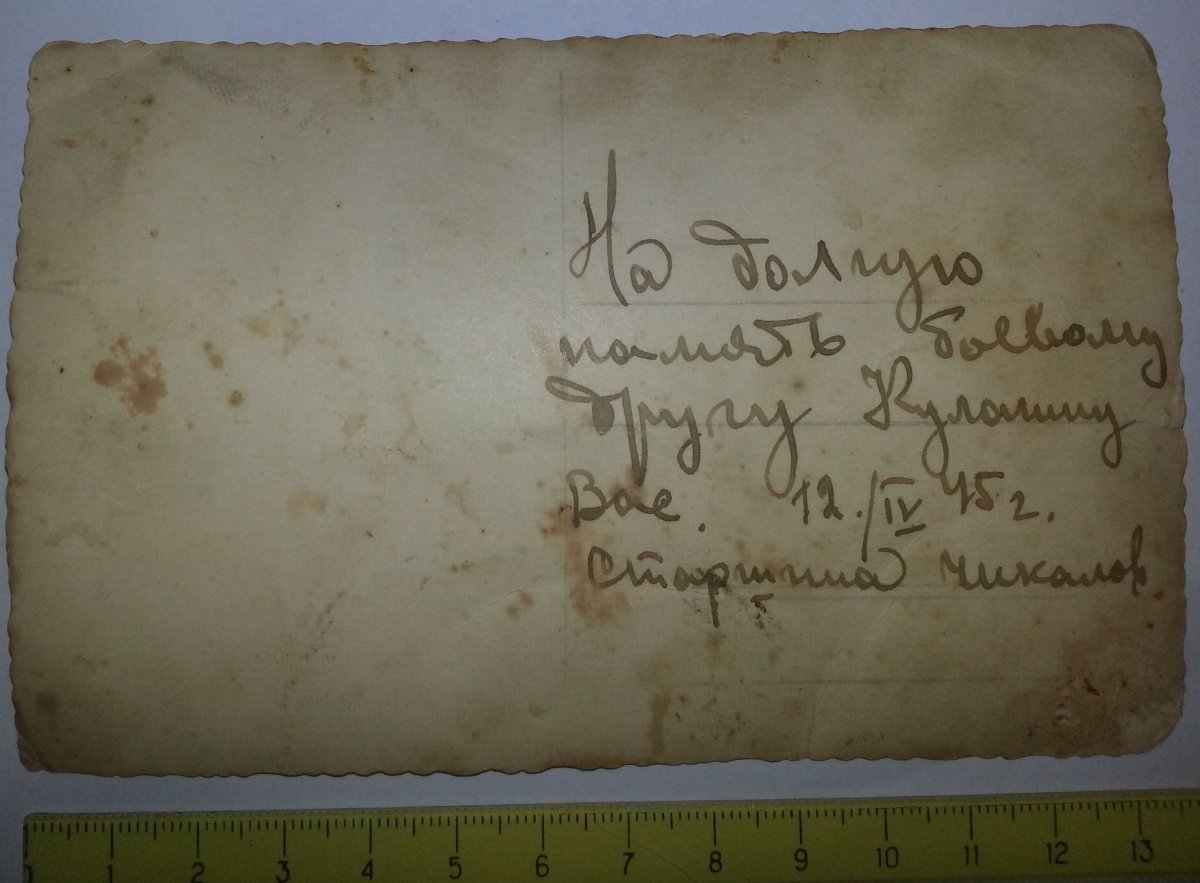 На долгую
память боевому
другу Кулагину
Вас. 12./IV 45 г.
Старшина Чикалов.
1 2 3 4 5 6 7 8 9 10 11 12 13